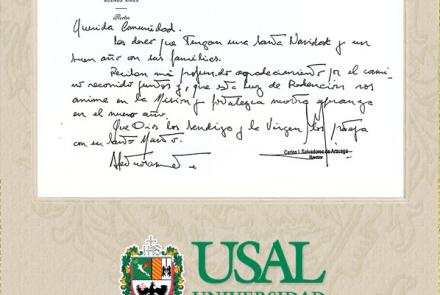 BUENOS AIRES
Rector
Querida Comunidad.
Les deseo que tengan una Santa Navidad y un
buen año con sus familias.
Reciban mi profundo agradecimiento por el cami-
no recorrido juntos y que esta luz de Redención nos
anime en la Misión y fortalezca nuestra esperanza
en el nuevo año.
Que Dios los bendiga y la Virgen los proteja
con su Santo Manto.
Carlos I. Salvadores de Arzuaga
Rector
USAL
UNIVERSIDAD